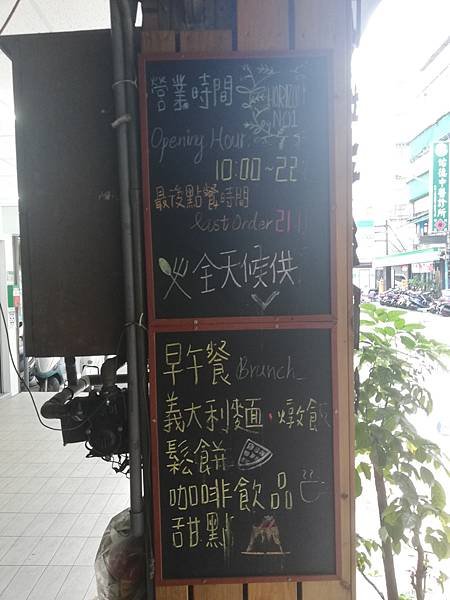 營業時間
HORIZON
NO.1
Opening Hour
10:00~22
最後點餐時間
List Order 21:1
全天候供
早午餐 Brunch
義大利麵、燉飯
鬆餅
咖啡飲品
甜點
診德中醫診所